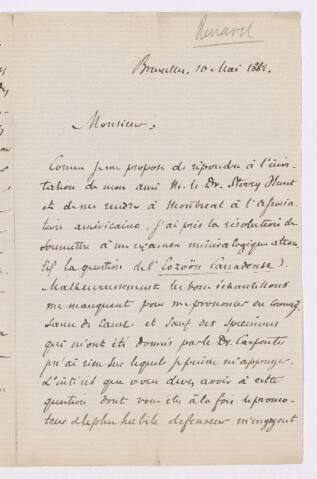 Renard
Bruxelles, 10 Mai 1882.
Monsieur,
Comme je me propose de répondre à l'invi-
tation de mon ami M. le Dr. Sterry Hunt
et de me rendre à Montreal à l'associa-
tion américaine, j'ai pris la résolution de
soumettre à un examen minéralogique atten-
tif la question de l'Eozoön Canadense.
Malheureusement les bons échantillons
me manquent pour me prononcer en connais-
sance de cause et sauf des specimens
qui m'ont été donnés par le Dr. Carpenter
je n'ai rien sur lequel je puisse m'appuyer.
L'intérêt que vous devez avoir à cette
question dont vous êtes à la fois le promo-
teur et le plus habile defenseur m'engagent